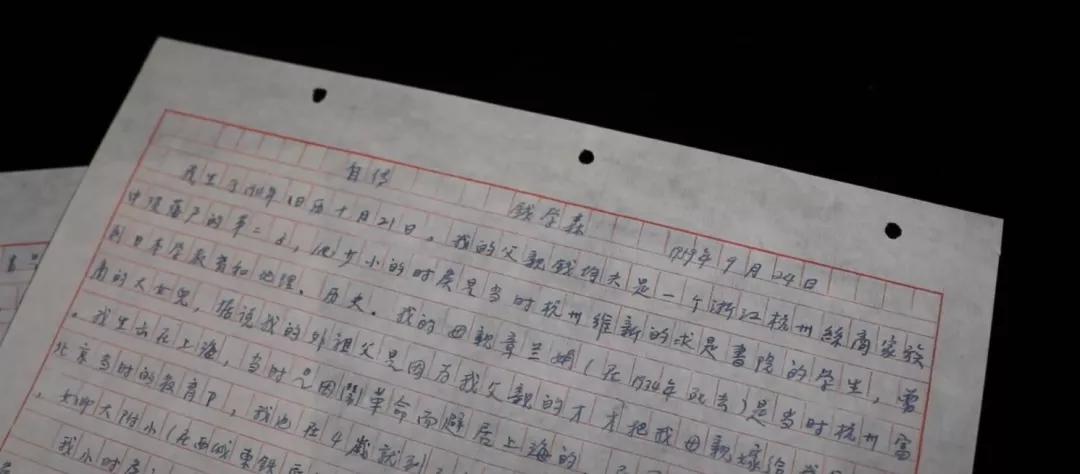 自传
钱学森
1959年9月24日
我生于1911年旧历十月21日。我的父亲钱均夫是一个浙江杭州絲商家族
中没落户的第二子，他少小的时候是当时杭州维新的求是書院的学生，曾
到日本学教育和地理、历史。我的母親章兰娟（在1934年死去）是当时杭州富
商的大女兒，据说我的外祖父是因为我父親的才才把我母親嫁给我
。我生出在上海，当时是因鬧革命而避居上海的
北京当时的教育P，我也在4歲就到
，女师大附小（在西城東鉄
我小时